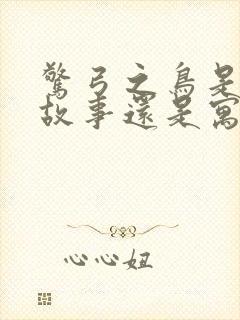 驚弓之鳥是
故事還是寓
心心妞